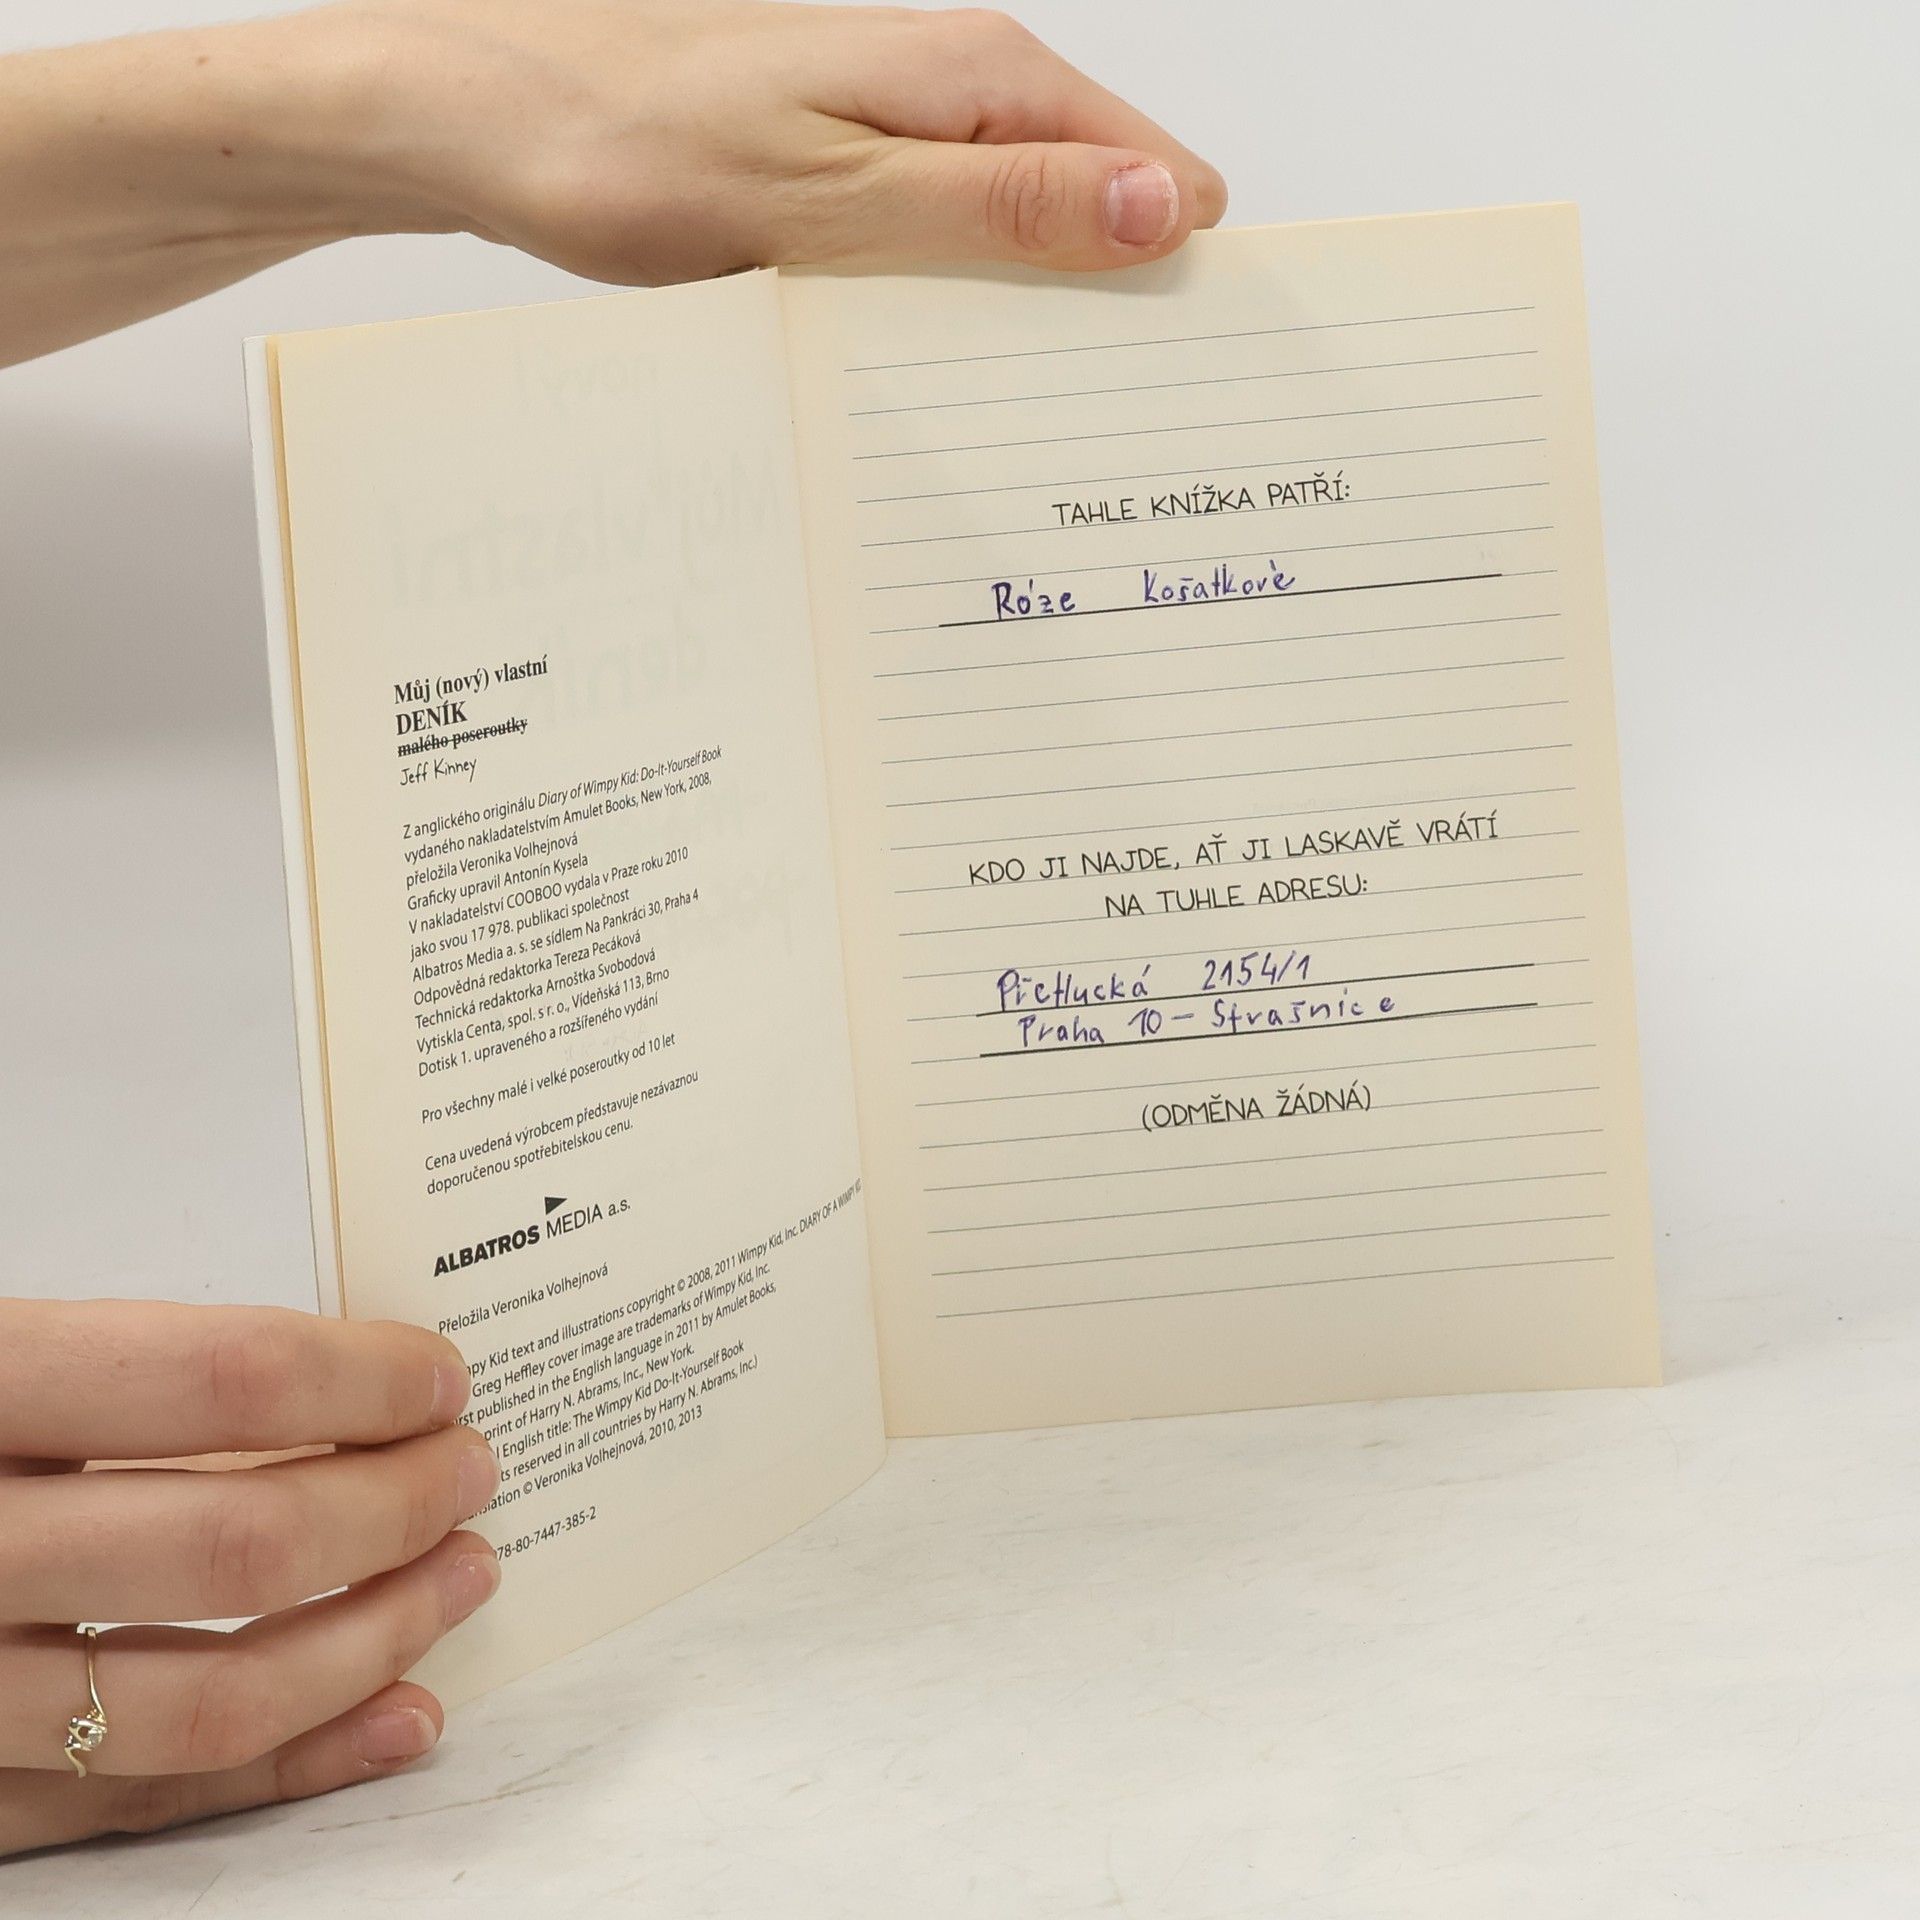 Můj (nový) vlastní
DENÍK
malého poseroutky
Jeff Kinney
Z anglického originálu Diary of Wimpy Kid: Do-It-Yourself Book
vydaného nakladatelstvím Amulet Books, New York, 2008,
přeložila Veronika Volhejnová
Graficky upravil Antonín Kysela
V nakladatelství COOBOO vydala v Praze roku 2010
jako svou 17 978. publikaci společnost
Albatros Media a. s. se sídlem Na Pankráci 30, Praha 4
Odpovědná redaktorka Tereza Pecáková
Technická redaktorka Arnoštka Svobodová
Vytiskla Centa, spol. s r. o., Vídeňská 113, Brno
Dotisk 1. upraveného a rozšířeného vydání
Pro všechny malé i velké poseroutky od 10 let
Cena uvedená výrobcem představuje nezávaznou
doporučenou spotřebitelskou cenu.
ALBATROS MEDIA a.s.
Přeložila Veronika Volhejnová
Kid text and illustrations copyright © 2008, 2011 Wimpy Kid, Inc. DIARY OF A WIMPY
Greg Heffley cover image are trademarks of Wimpy Kid, Inc.
published in the English language in 2011 by Amulet Books,
print of Harry N. Abrams, Inc., New York.
English title: The Wimpy Kid Do-It-Yourself Book
reserved in all countries by Harry N. Abrams, Inc.)
© Veronika Volhejnová, 2010, 2013
78-80-7447-385-2
TAHLE KNÍŽKA PATŘÍ:
Róze Košatkové
KDO JI NAJDE, AŤ JI LASKAVĚ VRÁTÍ
NA TUHLE ADRESU:
Přetlucká 2154/1
Praha 10 - Strašnice
(ODMĚNA ŽÁDNÁ)